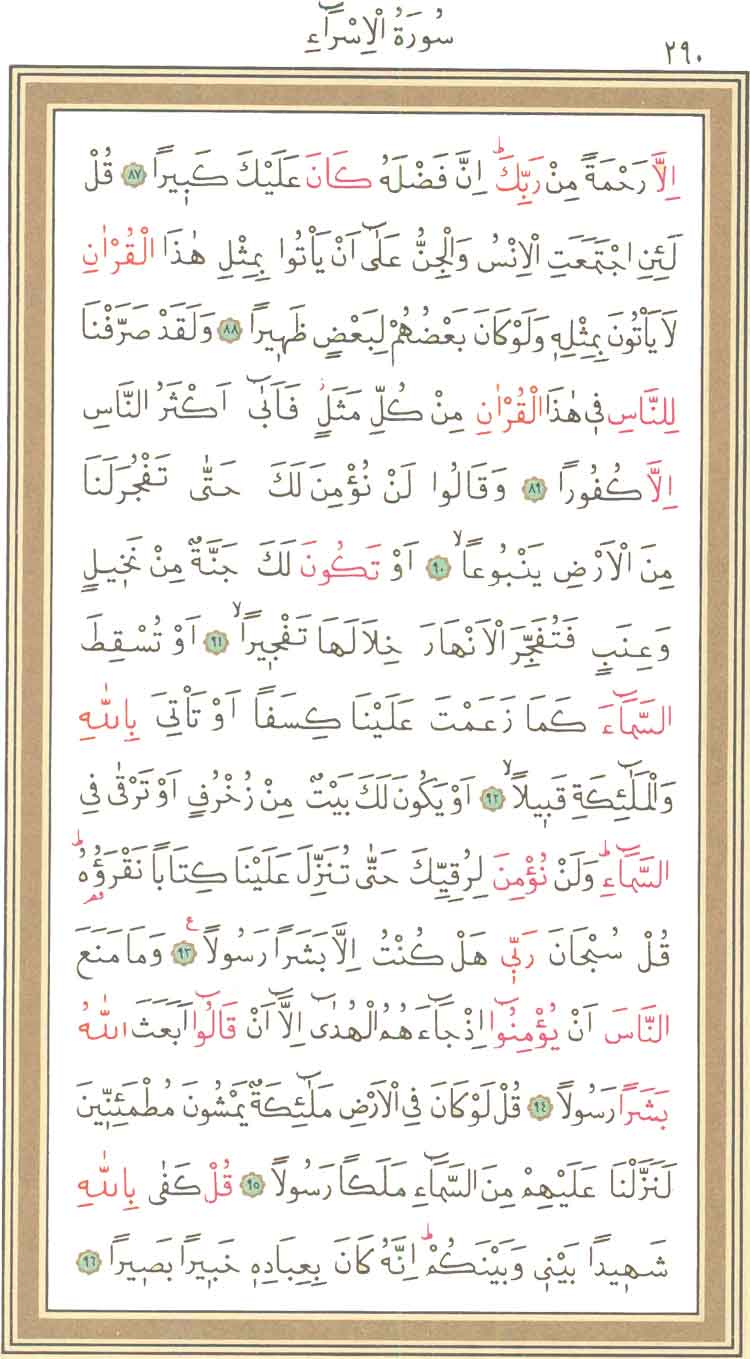 سُورَةُ الْاِسْرَٓاءِ
٢٩٠
اِلَّا رَحْمَةً مِنْ رَبِّكَۜ اِنَّ فَضْلَهُ كَانَ عَلَيْكَ كَب۪يرًا ﴿٨٧﴾ قُلْ
لَئِنِ اجْتَمَعَتِ الْاِنْسُ وَالْجِنُّ عَلٰٓى اَنْ يَأْتُوا بِمِثْلِ هٰذَا الْقُرْاٰنِ
لَا يَأْتُونَ بِمِثْلِه۪ وَلَوْ كَانَ بَعْضُهُمْ لِبَعْضٍ ظَه۪يرًا ﴿٨٨﴾ وَلَقَدْ صَرَّفْنَا
لِلنَّاسِ ف۪ي هٰذَا الْقُرْاٰنِ مِنْ كُلِّ مَثَلٍۘ فَاَبٰٓى اَكْثَرُ النَّاسِ
اِلَّا كُفُورًا ﴿٨٩﴾ وَقَالُوا لَنْ نُؤْمِنَ لَكَ حَتّٰى تَفْجُرَ لَنَا
مِنَ الْاَرْضِ يَنْبُوعًاۙ ﴿٩٠﴾ اَوْ تَكُونَ لَكَ جَنَّةٌ مِنْ نَخ۪يلٍ
وَعِنَبٍ فَتُفَجِّرَ الْاَنْهَارَ خِلَالَهَا تَفْج۪يرًاۙ ﴿٩١﴾ اَوْ تُسْقِطَ
السَّمَٓاءَ كَمَا زَعَمْتَ عَلَيْنَا كِسَفًا اَوْ تَأْتِيَ بِاللّٰهِ
وَالْمَلٰٓئِكَةِ قَب۪يلًاۙ ﴿٩٢﴾ اَوْ يَكُونَ لَكَ بَيْتٌ مِنْ زُخْرُفٍ اَوْ تَرْقٰى فِي
السَّمَٓاءِۜ وَلَنْ نُؤْمِنَ لِرُقِيِّكَ حَتّٰى تُنَزِّلَ عَلَيْنَا كِتَابًا نَقْرَؤُ۬هُۜ
قُلْ سُبْحَانَ رَبّ۪ي هَلْ كُنْتُ اِلَّا بَشَرًا رَسُولًا۟ ﴿٩٣﴾ وَمَا مَنَعَ
النَّاسَ اَنْ يُؤْمِنُٓوا اِذْ جَٓاءَهُمُ الْهُدٰٓى اِلَّٓا اَنْ قَالُٓوا اَبَعَثَ اللّٰهُ
بَشَرًا رَسُولًا ﴿٩٤﴾ قُلْ لَوْ كَانَ فِي الْاَرْضِ مَلٰٓئِكَةٌ يَمْشُونَ مُطْمَئِنّ۪ينَ
لَنَزَّلْنَا عَلَيْهِمْ مِنَ السَّمَٓاءِ مَلَكًا رَسُولًا ﴿٩٥﴾ قُلْ كَفٰى بِاللّٰهِ
شَه۪يدًا بَيْن۪ي وَبَيْنَكُمْۜ اِنَّهُ كَانَ بِعِبَادِه۪ خَب۪يرًا بَص۪يرًا ﴿٩٦﴾